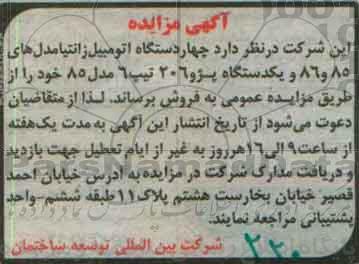 آگهی مزایده
این شرکت درنظر دارد چهاردستگاه اتومبیل زانتیامدل‌های
۸۵ و۸۶ و یکدستگاه پژو۲۰۶ تیپ۶ مدل۸۵ خود را از
طریق مزایده عمومی به فروش برساند. لذا از متقاضیان
دعوت می‌شود از تاریخ انتشار این آگهی به مدت یک‌هفته
از ساعت۹ الی۱۶ هرروز به غیر از ایام تعطیل جهت بازدید
و دریافت مدارک شرکت در مزایده به آدرس خیابان احمد
قصیر خیابان بخارست هشتم پلاک۱۱ طبقه ششم-واحد
پشتیبانی مراجعه نمایند.
شرکت بین المللی توسعه ساختمان
۲۲۰